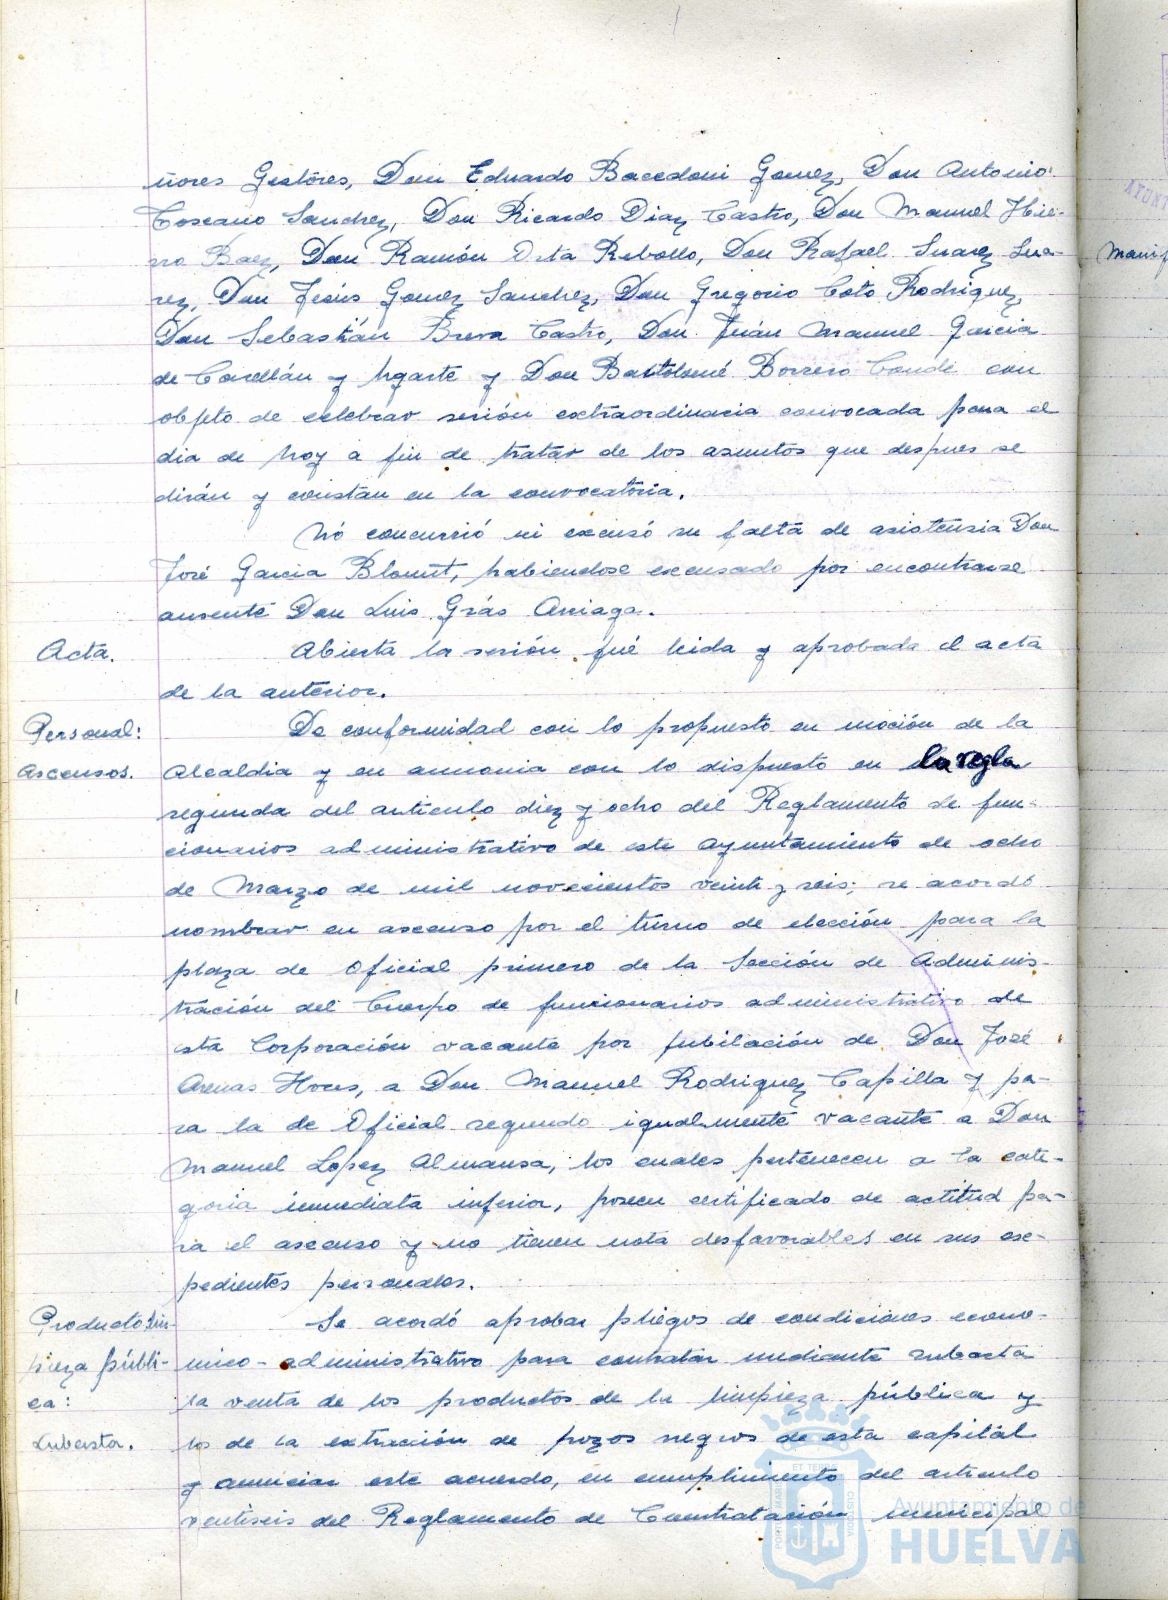 ñores Gestores, Don Eduardo Bacedoni Gomez, Don Antonio
Toscano Sanchez, Don Ricardo Diaz Castro, Don Manuel Hie-
rro Baez, Don Ramón Orta Rebollo, Don Rafael Suarez Sua-
rez, Don Jesús Gomez Sanchez, Don Gregorio Coto Rodriguez,
Don Sebastián Breva Castro, Don Juán Manuel Garcia
de Castellán y Ugarte y Don Bartolomé Borrero Conde con
objeto de celebrar sesión extraordinaria convocada para el
dia de hoy a fin de tratar de los asuntos que despues se
dirán y constan en la convocatoria.
No concurrió ni excusó su falta de asistensia Don
José Garcia Blount, habiendose excusado por encontrarse
ausente Don Luis Grás Arriaga.
Acta.
Abierta la sesión fué leida y aprobada el acta
de la anterior.
Personal:
Ascensos.
De conformidad con lo propuesto en moción de la
Alcaldia y en armonia con lo dispuesto en la regla
segunda del articulo diez y ocho del Reglamento de fun-
cionarios administrativo de este Ayuntamiento de ocho
de Marzo de mil novecientos veinte y seis; se acordó
nombrar en ascenso por el turno de elección para la
plaza de Oficial primero de la Sección de Adminis-
tración del Cuerpo de funcionarios administrativo de
esta Corporación vacante por jubilación de Don José
Arenas Hoces, a Don Manuel Rodriguez Capilla y pa-
ra la de Oficial segundo igualmente vacante a Don
Manuel Lopez Almansa, los cuales pertenecen a la cate-
goria inmediata inferior, poseen certificado de actitud pa-
ra el ascenso y no tienen nota desfavorables en sus esc-
pedientes personales.
Producto lim-
pieza públi-
ca:
Subasta.
Se acordó aprobar pliegos de condiciones econo-
mico-administrativo para contratar mediante subasta
la venta de los productos de la limpieza pública y
los de la extracción de pozos negros de esta capitál
y anunciar este acuerdo, en cumplimiento del articulo
ventiseis del Reglamento de Contratación municipal
Manif
AYUNT
Ayuntamiento de
HUELVA